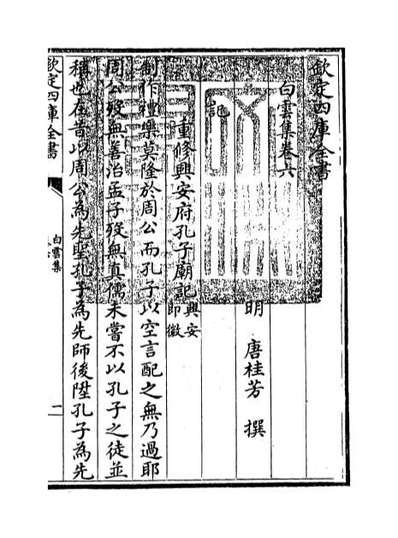 欽定四庫全書
白雲集卷六
明 唐桂芳 撰
記
重修興安府孔子廟記興安
即徽
制作禮樂莫隆於周公而孔子以空言配之無乃過耶
周公歿無善治孟子歿無真儒未嘗不以孔子之徒並
稱也在昔以周公為先聖孔子為先師後陞孔子為先
欽定四庫全書
白雲集
一